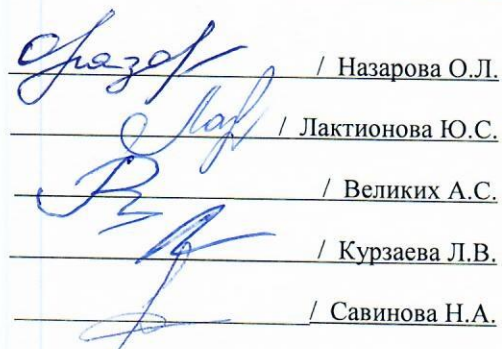 / Назарова О.Л.
/ Лактионова Ю.С.
/ Великих А.С.
/ Курзаева Л.В.
/ Савинова Н.А.